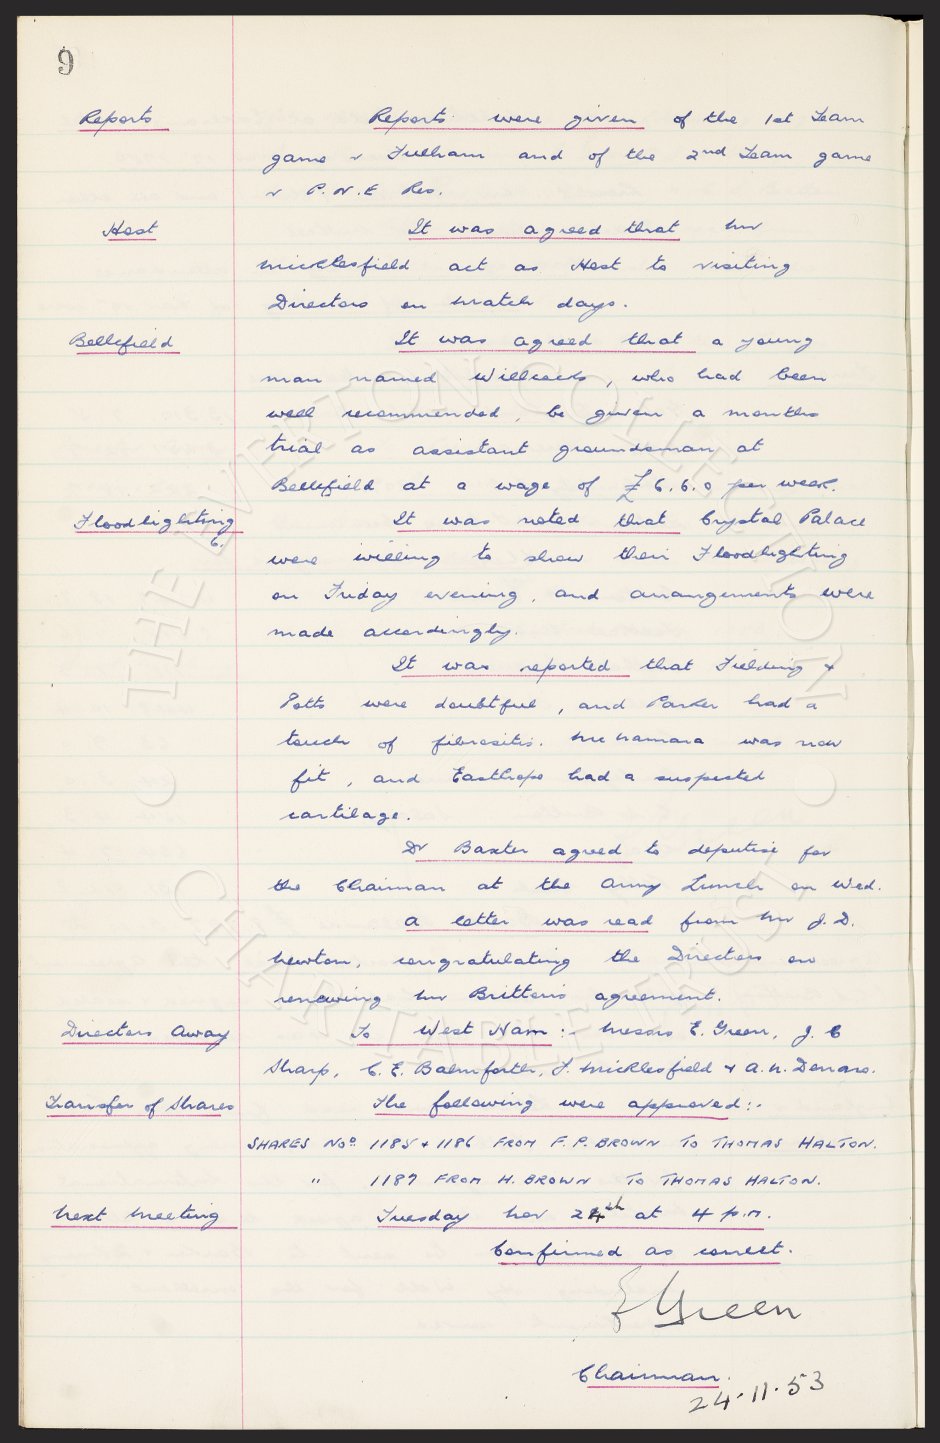 9
Reports Reports were given of the 1st Team
game v Fulham and of the 2nd Team game
v P.N.E Res.
Host It was agreed that Mr
Micklesfield act as Host to visiting
Directors on match days.
Bellefield It was agreed that a young
man named Willcocks, who had been
well recommended, be given a months
trial as assistant groundsman at
Bellefield at a wage of £6.6.0 per week.
Floodlighting It was noted that Crystal Palace
were willing to show their Floodlighting
on Friday evening, and arrangements were
made accordingly.
It was reported that Fielding &
Potts were doubtful, and Parker had a
touch of fibrositis. McNamara was now
fit, and Easthope had a suspected
cartilage.
Dr Baxter agreed to deputise for
the Chairman at the Army Lunch on Wed.
A letter was read from Mr J. D.
Newton, congratulating the Directors on
renewing Mr Britton's agreement.
Directors Away To West Ham :- Messrs E. Green, J. C
Sharp, C. E. Balmforth, F. Micklesfield & A. N. Denaro.
Transfer of Shares The following were approved:-
SHARES Nos 1185 & 1186 FROM F. P. BROWN TO THOMAS HALTON.
" 1187 FROM H. BROWN TO THOMAS HALTON.
Next Meeting Tuesday Nov 24th at 4 p.m.
Confirmed as correct.
E Green
Chairman.
24.11.53
THE EVERTON COLLECTION
CHARITABLE TRUST